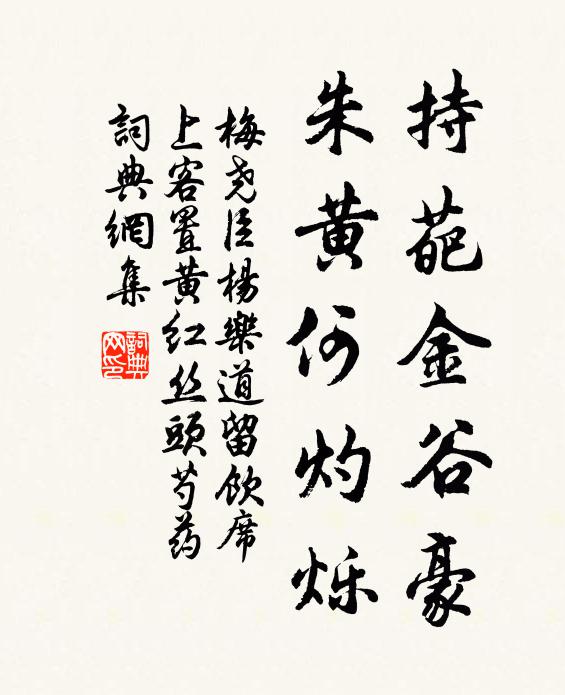 持葩金谷豪
朱黄何灼烁
梅尧臣杨樂道留飲席
上客置黄红丝頭芍药
詞典網集
詞典
网印